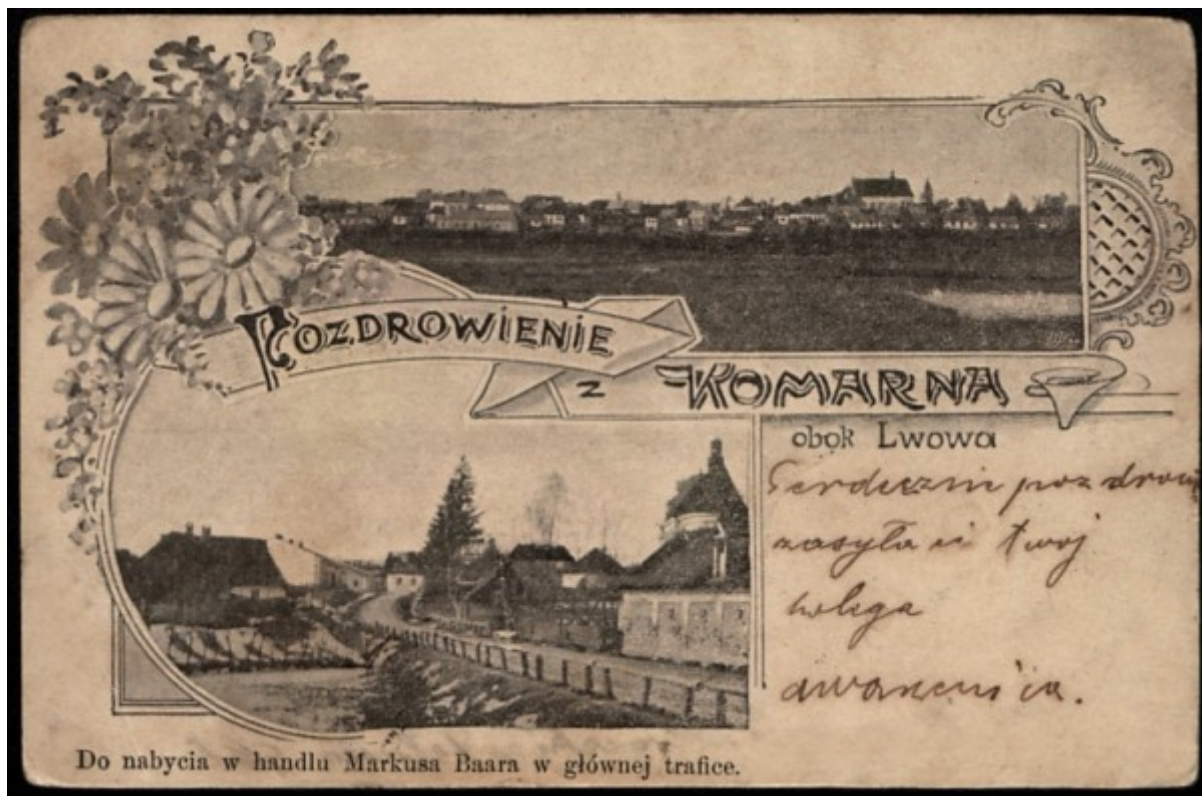 POZDROWIENIE
z KOMARNA
obok Lwowa
Serdeczni pozdrow
zasyła ci twoj
kolega
Do nabycia w handlu Markusa Baara w głównej trafice.